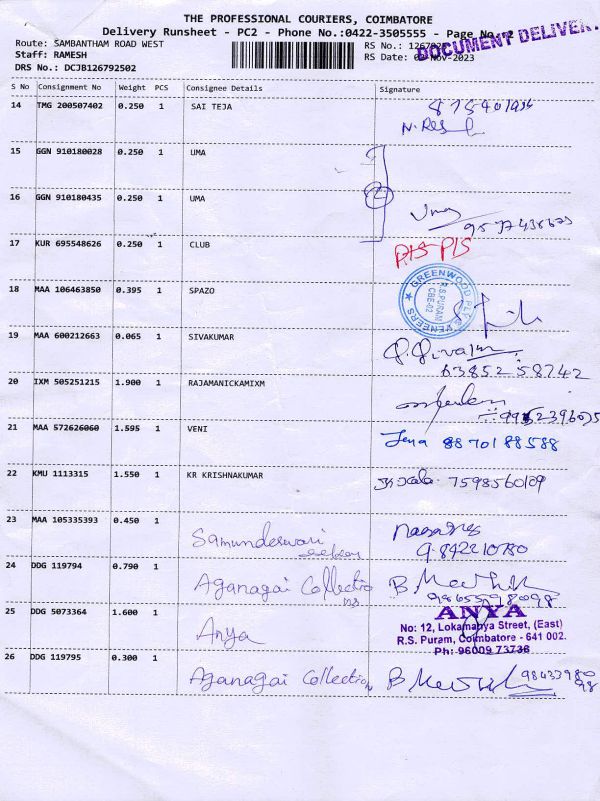 THE PROFESSIONAL COURIERS, COIMBATORE
Delivery Runsheet - PC2 - Phone No.:0422-3505555 - Page No.: 2
DOCUMENT DELIVER
Route: SAMBANTHAM ROAD WEST
Staff: RAMESH
DRS No.: DCJB126792502
RS No.: 1267925
RS Date: 02-Nov-2023
S No Consignment No Weight PCS Consignee Details Signature
14 TMG 200507402 0.250 1 SAI TEJA
15 GGN 910180028 0.250 1 UMA
16 GGN 910180435 0.250 1 UMA 2 Uma
17 KUR 695548626 0.250 1 CLUB P.IS PIS
18 MAA 106463850 0.395 1 SPAZO
GREENWOOD PLY VENEERS R.S.PURAM CBE-02
19 MAA 600212663 0.065 1 SIVAKUMAR
63852 58742
20 IXM 505251215 1.900 1 RAJAMANICKAMIXM
21 MAA 572626060 1.595 1 VENI Jena 8870188588
22 KMU 1113315 1.550 1 KR KRISHNAKUMAR 7598560109
23 MAA 105335393 0.450 1 Samundeswari
9842210780
24 DDG 119794 0.790 1 Aganagai Collection
25 DDG 5073364 1.600 1 Anya
ANYA
No: 12, Lokamanya Street, (East)
R.S. Puram, Coimbatore - 641 002.
Ph: 96009 73736
26 DDG 119795 0.300 1 Aganagai Collection